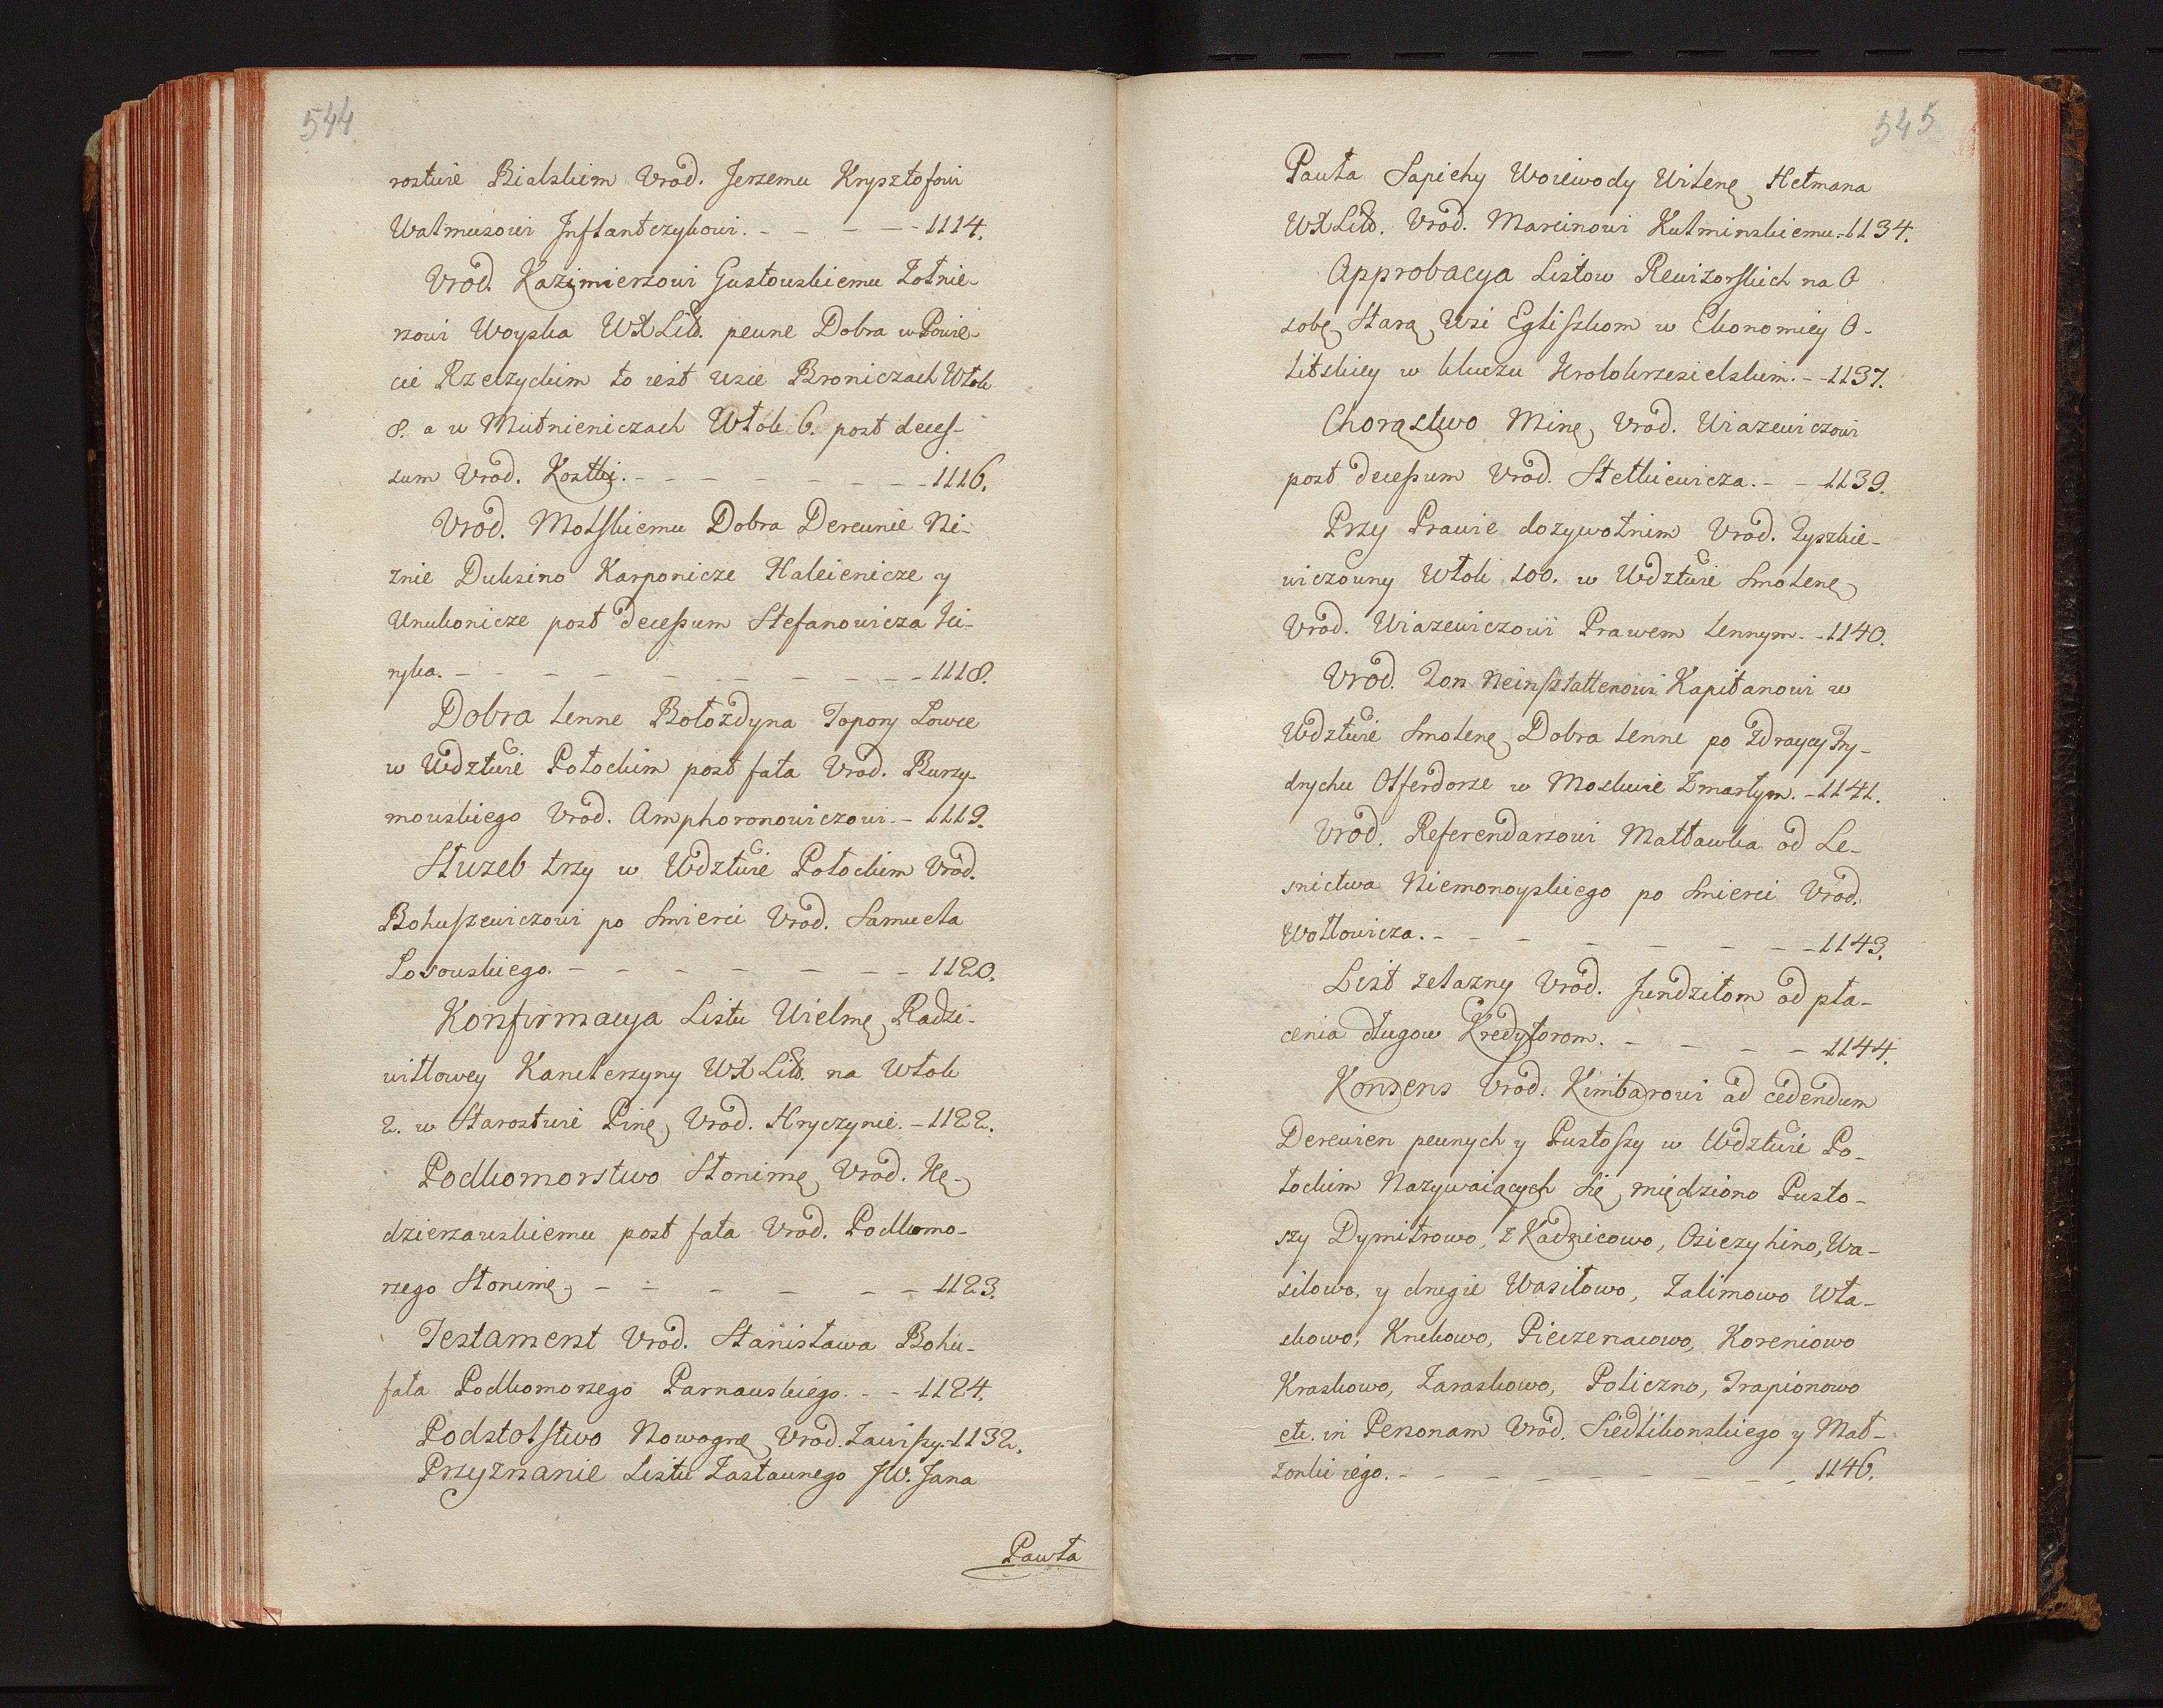 544
rostwie Bialskim Urod. Jerzemu Krysztofowi
Walmusowi Inflantczykowi. - - - - - 1114.
Urod. Kazimierzowi Gustowskiemu Zołnie-
rzowi Woyska WXLitt. pewne Dobra w Powie-
cie Rzeczyckim to iest wsie Broniczach Włok
8. a w Mutnieniczach Włok 6. post deces-
sum Urod. Kostki. - - - - - - - - 1116.
Urod. Molskiemu Dobra Derewnie Ni-
znie Duksino Karponicze Haleienicze y
Unukonicze post decessum Stefanowicza
ryka. - - - - - - - - - - 1118.
Dobra lenne Bołozdyna Topory Łowce
w Wdztwie Połockim post fata Urod. Burzy-
mowskiego Urod. Amphoronowiczowi. - 1119.
Słuzeb trzy w Wdztwie Połockim Urod.
Bohuszewiczowi po Smierci Urod. Samuela
Łosowskiego. - - - - - - - 1120.
Konfirmacya Listu Wielmę Radzi-
wiłłowey Kanclerzyny WXLitt. na Włok
2. w Starostwie Pinę Urod. Hryczynie. - 1122.
Podkomorstwo Słonimę Urod. Kę-
dzierzawskiemu post fata Urod. Podkomo-
rzego Słonimę - - - - - - 1123.
Testament Urod. Stanisława Bohu-
fała Podkomorzego Parnawskiego. - - 1124.
Podstolstwo Nowogrę Urod. Zawiszy. - 1132.
Przyznanie Listu Zastawnego JW. Jana
Pawła
545
Pawła Sapiehy Woiewody Witenę Hetmana
WXLitt. Urod. Marcinowi Kulminskiemu. - 1134.
Approbacya Listow Rewizorskich na O
sobę Starą Wsi Egliszkom w Ekonomiey O-
litskiey w kluczu Krolokrzesielskim. - - 1137.
Chorąstwo Minę Urod. Wiazewiczowi
post decessum Urod. Stetkiewicza. - - 1139.
Przy Prawie dozywotnim Urod. Tyszkie-
wiczowny Włok 100. w Wdztwie Smolenę
Urod. Wiazewiczowi Prawem Lennym. - 1140.
Urod. Zon Neinsztattenowi Kapitanowi w
Wdztwie Smolenę Dobra lenne po Zdraycy Fry-
drychu Olferdorze w Moskwie Zmarłym. - 1141.
Urod. Referendarzowi Małtawka od Le-
snictwa Niemonoyskiego po Smierci Urod.
Wołłowicza. - - - - - - - - 1143.
List zelazny Urod. Jundziłom od pła-
cenia długow Kredytorom. - - - - 1144.
Konsens Urod. Kimbarowi ad cedendum
Derewien pewnych y Pustoszy w Wdztwie Po-
łockim Nazywaiących się, międziono Pusto-
szy Dymitrowo, z Kadnicowo, Osieczyhino, Wa-
silowo, y drugie Wasiłowo, Zalimowo Wła-
skowo, Knekowo, Pieczenacowo, Koreniowo
Kraskowo, Zaraskowo, Policzno, Trapionowo
etc. in Personam Urod. Siedlikonskiego y Mał-
zonki iego. - - - - - - - - - 1146.